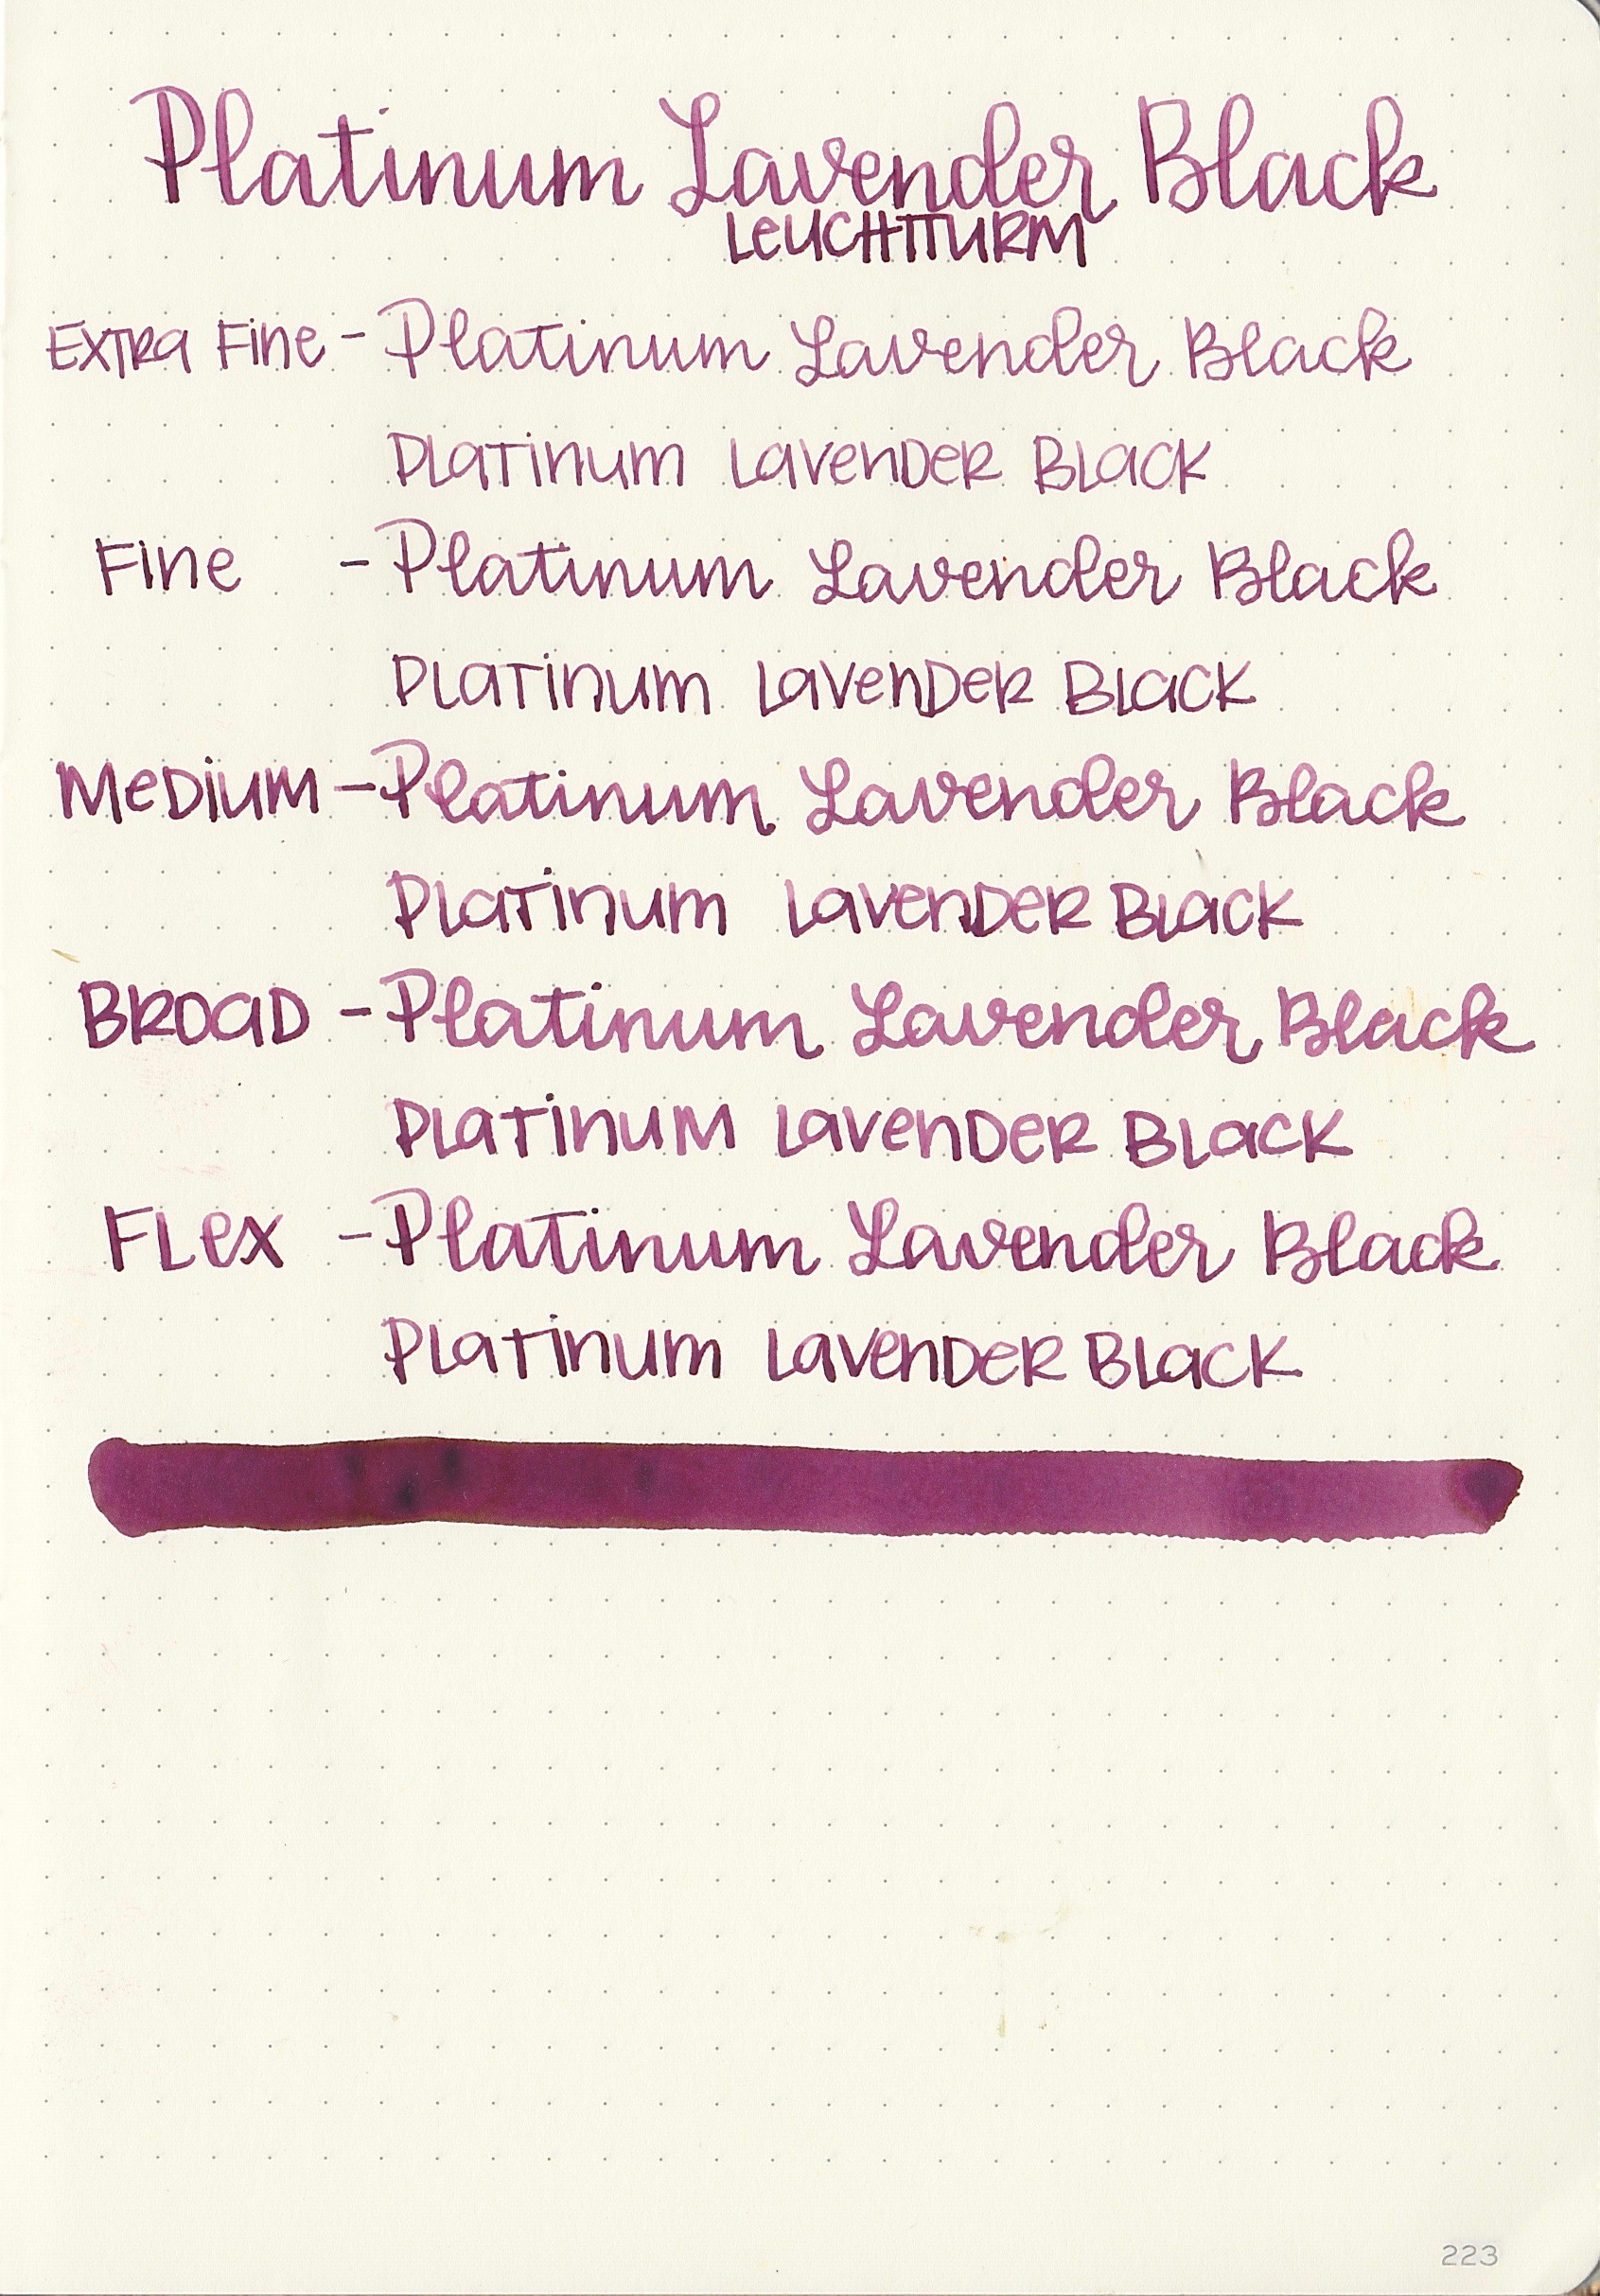 Platinum Lavender Black
LEUCHTTURM
EXTRA Fine - Platinum Lavender Black
PLATinum LavenDeR BLACK
Fine - Platinum Lavender Black
PLATinum LavenDeR BLACK
MeDiUM - Platinum Lavender Black
PLATinum LavenDeR BLACK
BROAD - Platinum Lavender Black
PLATinuM LavenDeR BLACK
FLex - Platinum Lavender Black
PLATinum LavenDeR BLACK
223